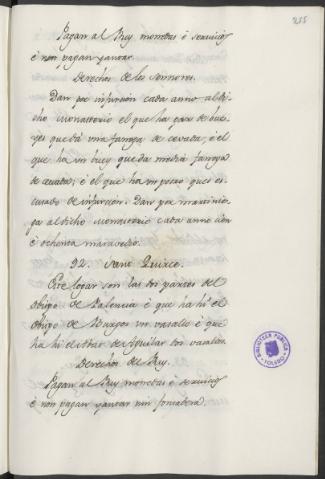 255
Pagan al Rey monedas é servicios
é non pagan yantar.
Derechos de los sennores.
Dan por infurcion cada anno al di-
cho monasterio el que ha par de bue-
yes que dá una fanega de cevada, é el
que ha un buey que da media fanega
de cevada, é el que ha un
cusado de infurcion. Dan por martinie-
ga al dicho monasterio cada anno
é ochenta maravedis.
92. Sant Quirce.
Este logar son las dos partes del
Obispo de Palencia é que ha hi el
Obispo de Burgos un vasallo é que
ha hi el Abbat de Aguilar dos vasallos.
Derechos del Rey.
Pagan al Rey monedas é servicios
é non pagan yantar nin fonsadera.
BIBLIOTECA PUBLICA
TOLEDO